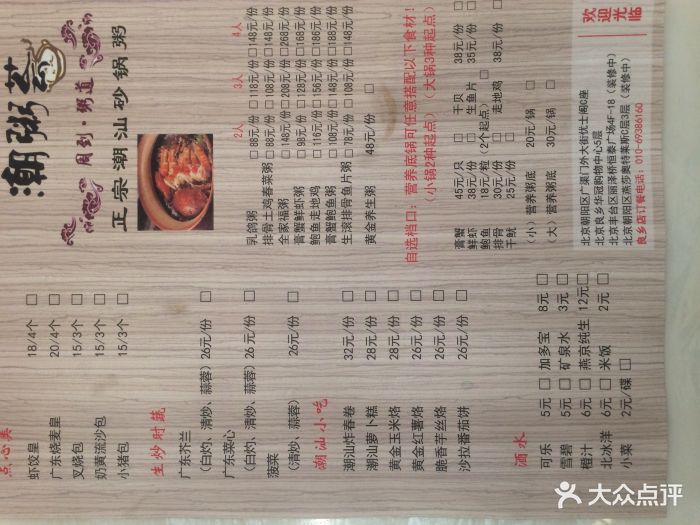 点心类
虾饺皇 18/4个 □
广东烧麦皇 20/4个 □
叉烧包 15/3个 □
奶黄流沙包 15/3个 □
小猪包 15/3个 □
生炒时蔬
广东芥兰
(白灼、清炒、蒜蓉) 26元/份 □
广东菜心
(白灼、清炒、蒜蓉) 26元/份 □
菠菜
(清炒、蒜蓉) 26元/份 □
潮汕小吃
潮汕炸春卷 32元/份 □
潮汕萝卜糕 28元/份 □
黄金玉米烙 28元/份 □
黄金红薯烙 26元/份 □
脆香芋丝烙 26元/份 □
沙拉番茄饼 26元/份 □
酒水
可乐 5元 □ 加多宝 8元 □
雪碧 5元 □ 矿泉水 3元 □
橙汁 6元 □ 燕京纯生 12元 □
北冰洋 6元 □ 米饭 2元 □
小菜 2元/碟 □
潮粥荟
周到·粥道
正宗潮汕砂锅粥
2人 3人 4人
乳鸽粥 □88元/份 □118元/份 □148元/份
排骨土鸡春菜粥 □88元/份 □108元/份 □148元/份
全家福粥 □146元/份 □208元/份 □268元/份
膏蟹鲜虾粥 □98元/份 □128元/份 □168元/份
鲍鱼走地鸡 □116元/份 □156元/份 □186元/份
膏蟹鲍鱼粥 □108元/份 □148元/份 □188元/份
生滚排骨鱼片粥 □78元/份 □108元/份 □148元/份
黄金养生粥 48元/份 □
自选档口:营养底锅可任意搭配以下食材!
(小锅2种起点) (大锅3种起点)
膏蟹 45元/只 □ 干贝 38元/份 □
鲜虾 38元/份 □ 生鱼片 35元/份 □
鲍鱼 18元/粒 (2个起点) □
排骨 30元/份 □ 走地鸡 38元/份 □
干鱿 25元/份 □
(小) 营养粥底 20元/锅 □
(大) 营养粥底 30元/锅 □
北京朝阳区广渠门外大街优士阁C座
北京良乡华冠购物中心5层
北京丰台区丽泽桥恒泰广场4F-18 (装修中)
北京朝阳区燕莎奥特莱斯C层3层 (装修中)
良乡店订餐电话:010-69386160
欢迎光临
大众点评